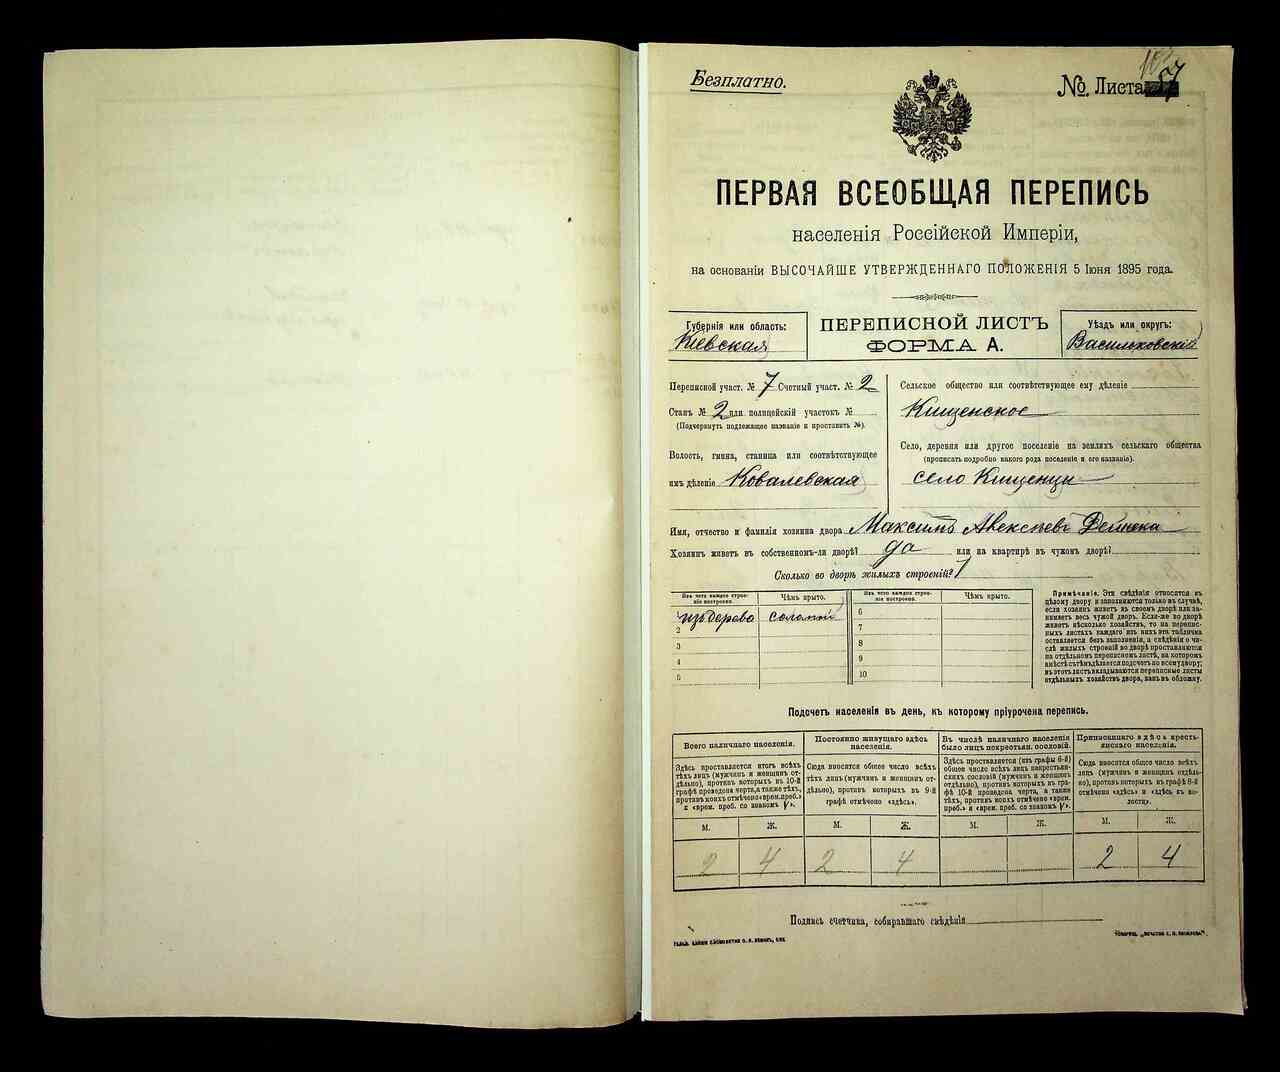 Безплатно.
№ Листа 57
ПЕРВАЯ ВСЕОБЩАЯ ПЕРЕПИСЬ
населенія Россійской Имперіи,
на основаніи ВЫСОЧАЙШЕ УТВЕРЖДЕННАГО ПОЛОЖЕНІЯ 5 Іюня 1895 года.
Губернія или область:
Кіевская
ПЕРЕПИСНОЙ ЛИСТЪ
ФОРМА А.
Уѣздъ или округъ:
Васильковскій
Переписной участ. № 7 Счетный участ. № 2
Станъ № 2 или полицейскій участокъ №
(Подчеркнуть подлежащее названіе и проставить №).
Волость, гмина, станица или соотвѣтствующее
имъ дѣленіе Ковалевская
Сельское общество или соотвѣтствующее ему дѣленіе
Кищенское
Село, деревня или другое поселеніе на земляхъ сельскаго общества
(прописать подробно какого рода поселеніе и его названіе).
село Кищенци
Имя, отчество и фамилія хозяина двора Максимъ Алексѣевъ
Хозяинъ живетъ въ собственномъ-ли дворѣ? да или на квартирѣ въ чужомъ дворѣ?
Сколько во дворѣ жилыхъ строеній? 1
Изъ чего каждое строеніе построено.
Чѣмъ крыто.
Изъ чего каждое строеніе построено.
Чѣмъ крыто.
1 изъ дерева соломой 6
2 7
3 8
4 9
5 10
Примѣчаніе. Эти свѣдѣнія относятся къ
цѣлому двору и заполняются только въ случаѣ,
если хозяинъ живетъ въ своемъ дворѣ или занимаетъ
весь чужой дворъ. Если-же во дворѣ
живетъ нѣсколько хозяйствъ, то на переписныхъ
листахъ каждаго изъ нихъ эта табличка
оставляется безъ заполненія, а свѣдѣнія о числѣ
жилыхъ строеній во дворѣ проставляются
на отдѣльномъ переписномъ листѣ, на которомъ
вмѣстѣ съ тѣмъ дѣлается подсчетъ по всему двору;
въ этотъ листъ вкладываются переписные листы
отдѣльныхъ хозяйствъ двора, какъ въ обложку.
Подсчетъ населенія въ день, къ которому пріурочена перепись.
Всего наличнаго населенія.
Постоянно живущаго здѣсь населенія.
Въ числѣ наличнаго населенія было лицъ некрестьян. сословій.
Приписаннаго здѣсь крестьянскаго населенія.
Здѣсь проставляется итогъ всѣхъ
тѣхъ лицъ (мужчинъ и женщинъ отдѣльно),
противъ которыхъ въ 10-й
графѣ проведена черта, а также тѣхъ,
противъ коихъ отмѣчено «врем. преб.»
и «врем. преб. со знакомъ V».
Сюда вносится общее число всѣхъ
тѣхъ лицъ (мужчинъ и женщинъ отдѣльно),
противъ которыхъ въ 9-й
графѣ отмѣчено «здѣсь».
Здѣсь проставляется (изъ графы 6-й)
общее число всѣхъ лицъ некрестьянскихъ
сословій (мужчинъ и женщинъ
отдѣльно), противъ которыхъ въ
графѣ 10-й проведена черта, а также
тѣхъ, противъ коихъ отмѣчено «врем.
преб.» и «врем. преб. со знакомъ V».
Сюда вносятъ общее число всѣхъ
лицъ (мужчинъ и женщинъ отдѣльно),
противъ которыхъ въ графѣ 8-й
отмѣчено «здѣсь» и «здѣсь въ волости».
М. Ж. М. Ж. М. Ж. М. Ж.
2 4 2 4 2 4
Подпись счетчика, собиравшаго свѣдѣнія